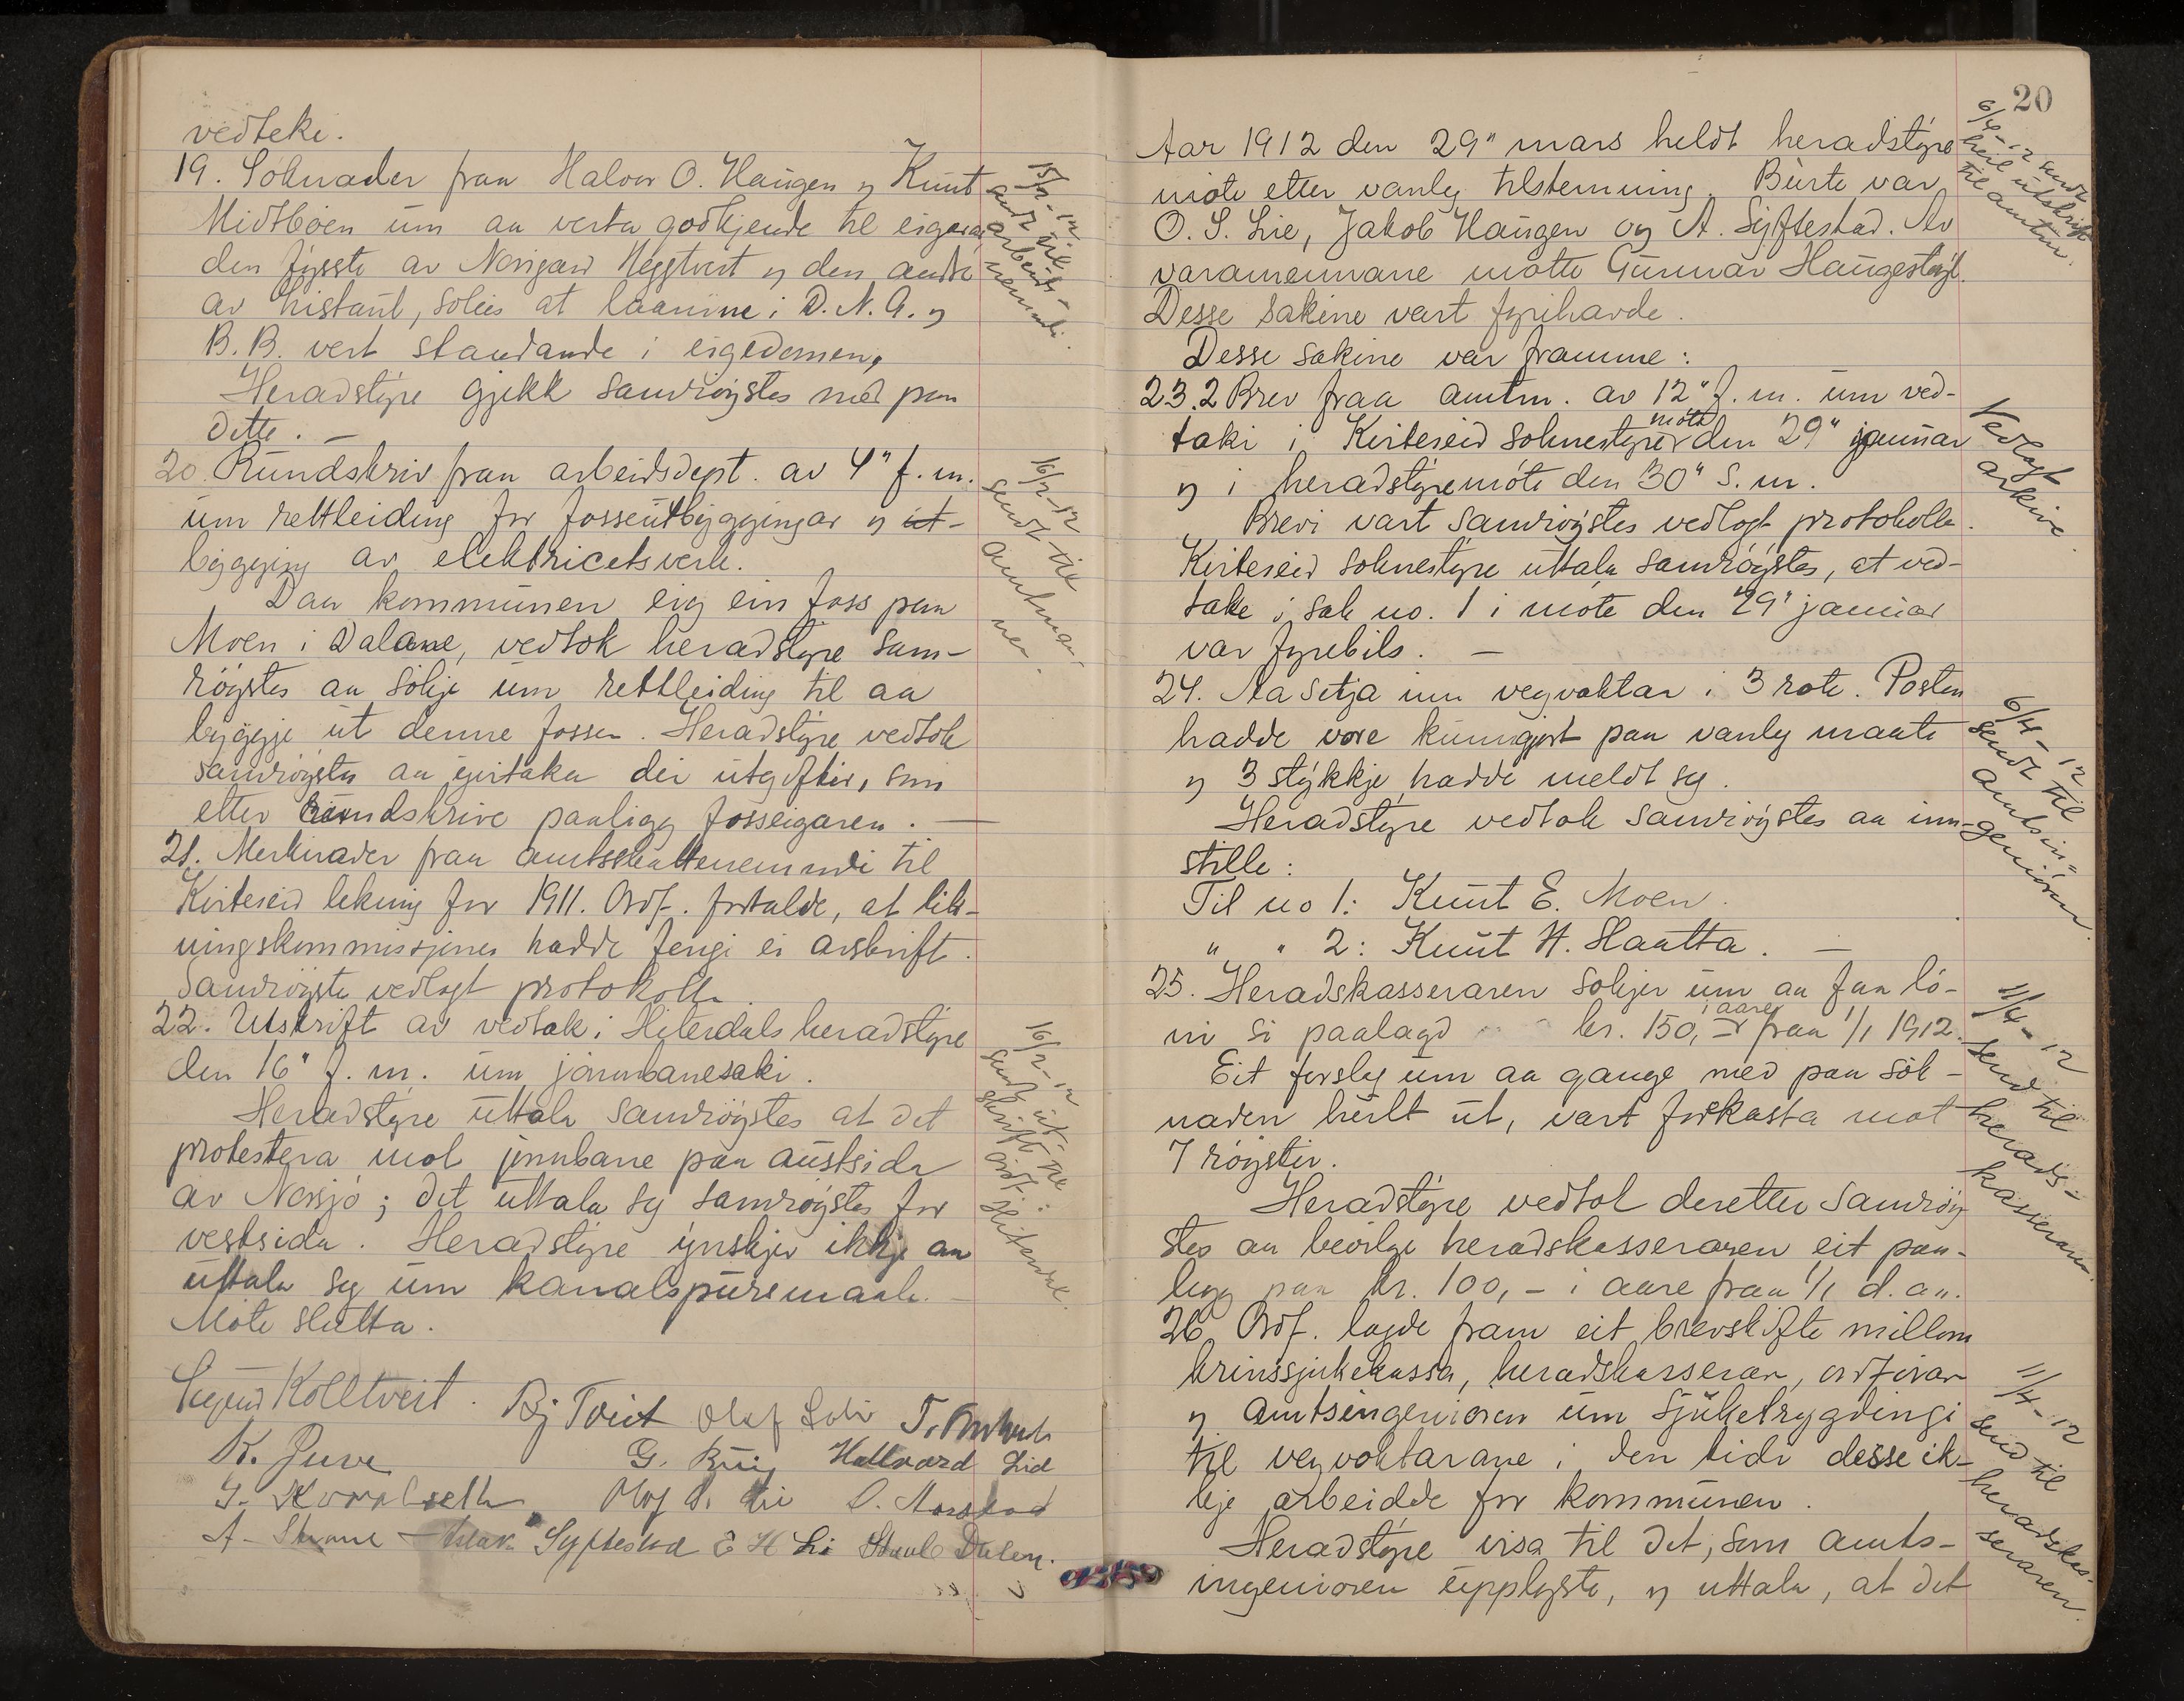 vedteke.
19. Söknader fraa Halvor O. Haugen og Knut
Midtböen um aa verta godkjende til eigarar
den fyrste av Norigard Heggtveit og den andre
av Kistaul, soleis at laanine i D. N. A. og
B. B. vert standande i eigedomen.
Heradstyre gjekk samröystes med paa
dette. —
20. Rundskriv fraa arbeidsdept. av 4" f. m.
um rettleiding for fosseutbyggjingar og ut-
bygging av elektricetsverk.
Daa kommunen eig ein foss paa
Moen i Dalane, vedtok heradstyre sam-
röystes aa sökje um rettleiding til aa
byggje ut denne fossen. Heradstyre vedtok
samröystes aa yvertaka dei utgifter, som
etter rundskrive paaligg fosseigaren. —
21. Merknader fraa amtsskattenemndi til
Kviteseid likning for 1911. Ordf. fortalde, at lik-
ningskommissjonen hadde fengi ei avskrift.
Samröystes vedlagt protokolle.
22. Utskrift av vedtak i Hiterdals heradstyre
den 16" f. m. um jarnbanesaki.
Heradstyre uttala samröystes at det
protestera mot jernbane paa austsida
av Norsjö; det uttala seg samröystes for
vestsida. Heradstyre ynskjer ikkje aa
uttala seg um kanalspursmaale. —
Möte slutta.
Sigurd Kolltveit. Bj Tveit Olaf Lohi
K. Juve G. Kuig Hallvard Lid
Olav S. Lie O. Aarestad
A. Strand Aslak Syftestad E H Li Staule Dalen.
15/2-12
sendt til
arbeids-
nemndi.
16/2-12
sendt til
amtman-
nen.
16/2-12
sendt ut-
skrift til
ordf. i Hiterdal.
20
Aar 1912 den 29" mars heldt heradstyre
möte etter vanleg tilstemning. Burte var
O. S. Lie, Jakob Haugen og A. Syftestad. Av
varamennane mötte Gunnar Haugestöyl.
Desse sakine vart fyrihavde.
Desse sakine var framme:
23. 2 Brev fraa amtm. av 12" f. m. um ved-
taki i Kviteseid soknestyremöte den 29" januar
og i heradstyremöte den 30" s. m.
Brevi vart samröystes vedlagt protokolle.
Kviteseid soknestyre uttala samröystes, at ved-
take i sak no. 1 i möte den 29" januar
var fyrebils. —
24. Aa setja inn vegvaktar i 3 rote. Posten
hadde vore kunngjort paa vanleg maate
og 3 stykkje hadde meldt seg.
Heradstyre vedtok samröystes aa inn-
stille:
Til no 1: Knut E. Moen.
" " 2: Knut H. Haatta. —
25. Heradskasseraren sökjer um aa faa lö-
ni si paalagd kr. 150,- i aaret fraa 1/1 1912.
Eit forslag um aa gange med paa sök-
naden heilt ut, vart forkasta mot
7 röyster.
Heradstyre vedtok deretter samröy-
stes aa bevilge heradskasseraren eit paa-
legg paa kr. 100,- i aare fraa 1/1 d. a..
26. Ordf. lagde fram eit brevskifte millom
krinssjukekassa, heradskasserar, ordförar
og amtsingeniören um sjuketrygdingi
til vegvoktarane i den tidi desse ik-
kje arbeidde for kommunen.
Heradstyre visa til det, som amts-
ingeniören upplyste, og uttala, at det
6/4-12 sendt
heil utskrift
til amtm.
Vedlagt
arkive.
6/4-12
sendt til
amtsin-
geniören.
11/4-12
send til
herads-
kasseraren.
11/4-12
send til
heradskas-
seraren.